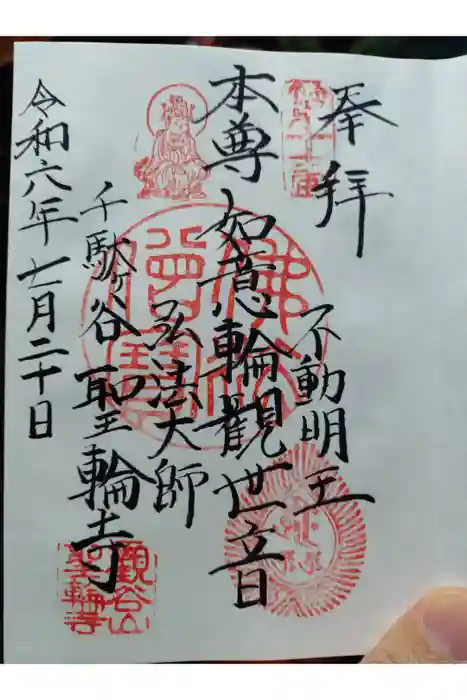 奉拝
不動明王
本尊 如意輪觀世音
弘法大師
千駄ヶ谷 聖輪寺
令和六年七月二十日
佛法僧寶
觀谷山
聖輪寺